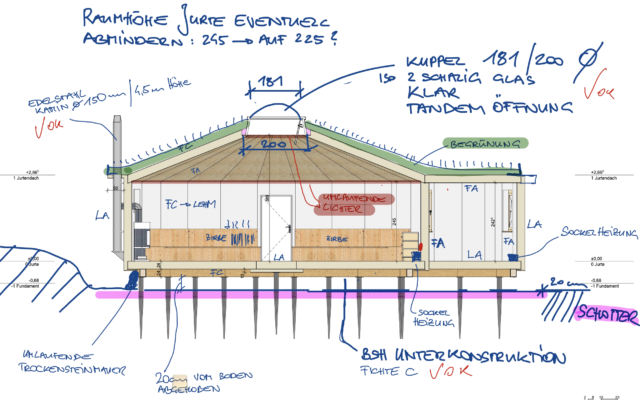 RAUMHÖHE JURTE EVENTUELL
ABMINDERN : 245 → AUF 225?
KUPPEL 181/200 Ø
ISO 2 SCHALIG GLAS
KLAR
TANDEM ÖFFNUNG
√OK
EDELSTAHL
KAMIN Ø150mm/4,5m HÖHE
√OK
181
200
BEGRÜNUNG
FC
FA
+2,66⁵
1 Jurtendach
+2,66⁵
1 Jurtendach
UMLAUFENDE
LICHTER
FC → LEHM
FA
LA
LA
FA
FA
245
242⁵
ZIRBE
ZIRBE
LA
LA
SOCKELHEIZUNG
±0,00
0 Jurte
±0,00
0 Jurte
-0,68
-1 Fundament
-0,68
-1 Fundament
FC
20cm
SCHOTTER
SOCKEL
HEIZUNG
UMLAUFENDE
TROCKENSTEINMAUER
20cm VOM BODEN
ABGEHOBEN
BSH UNTERKONSTRUKTION
FICHTE C √OK